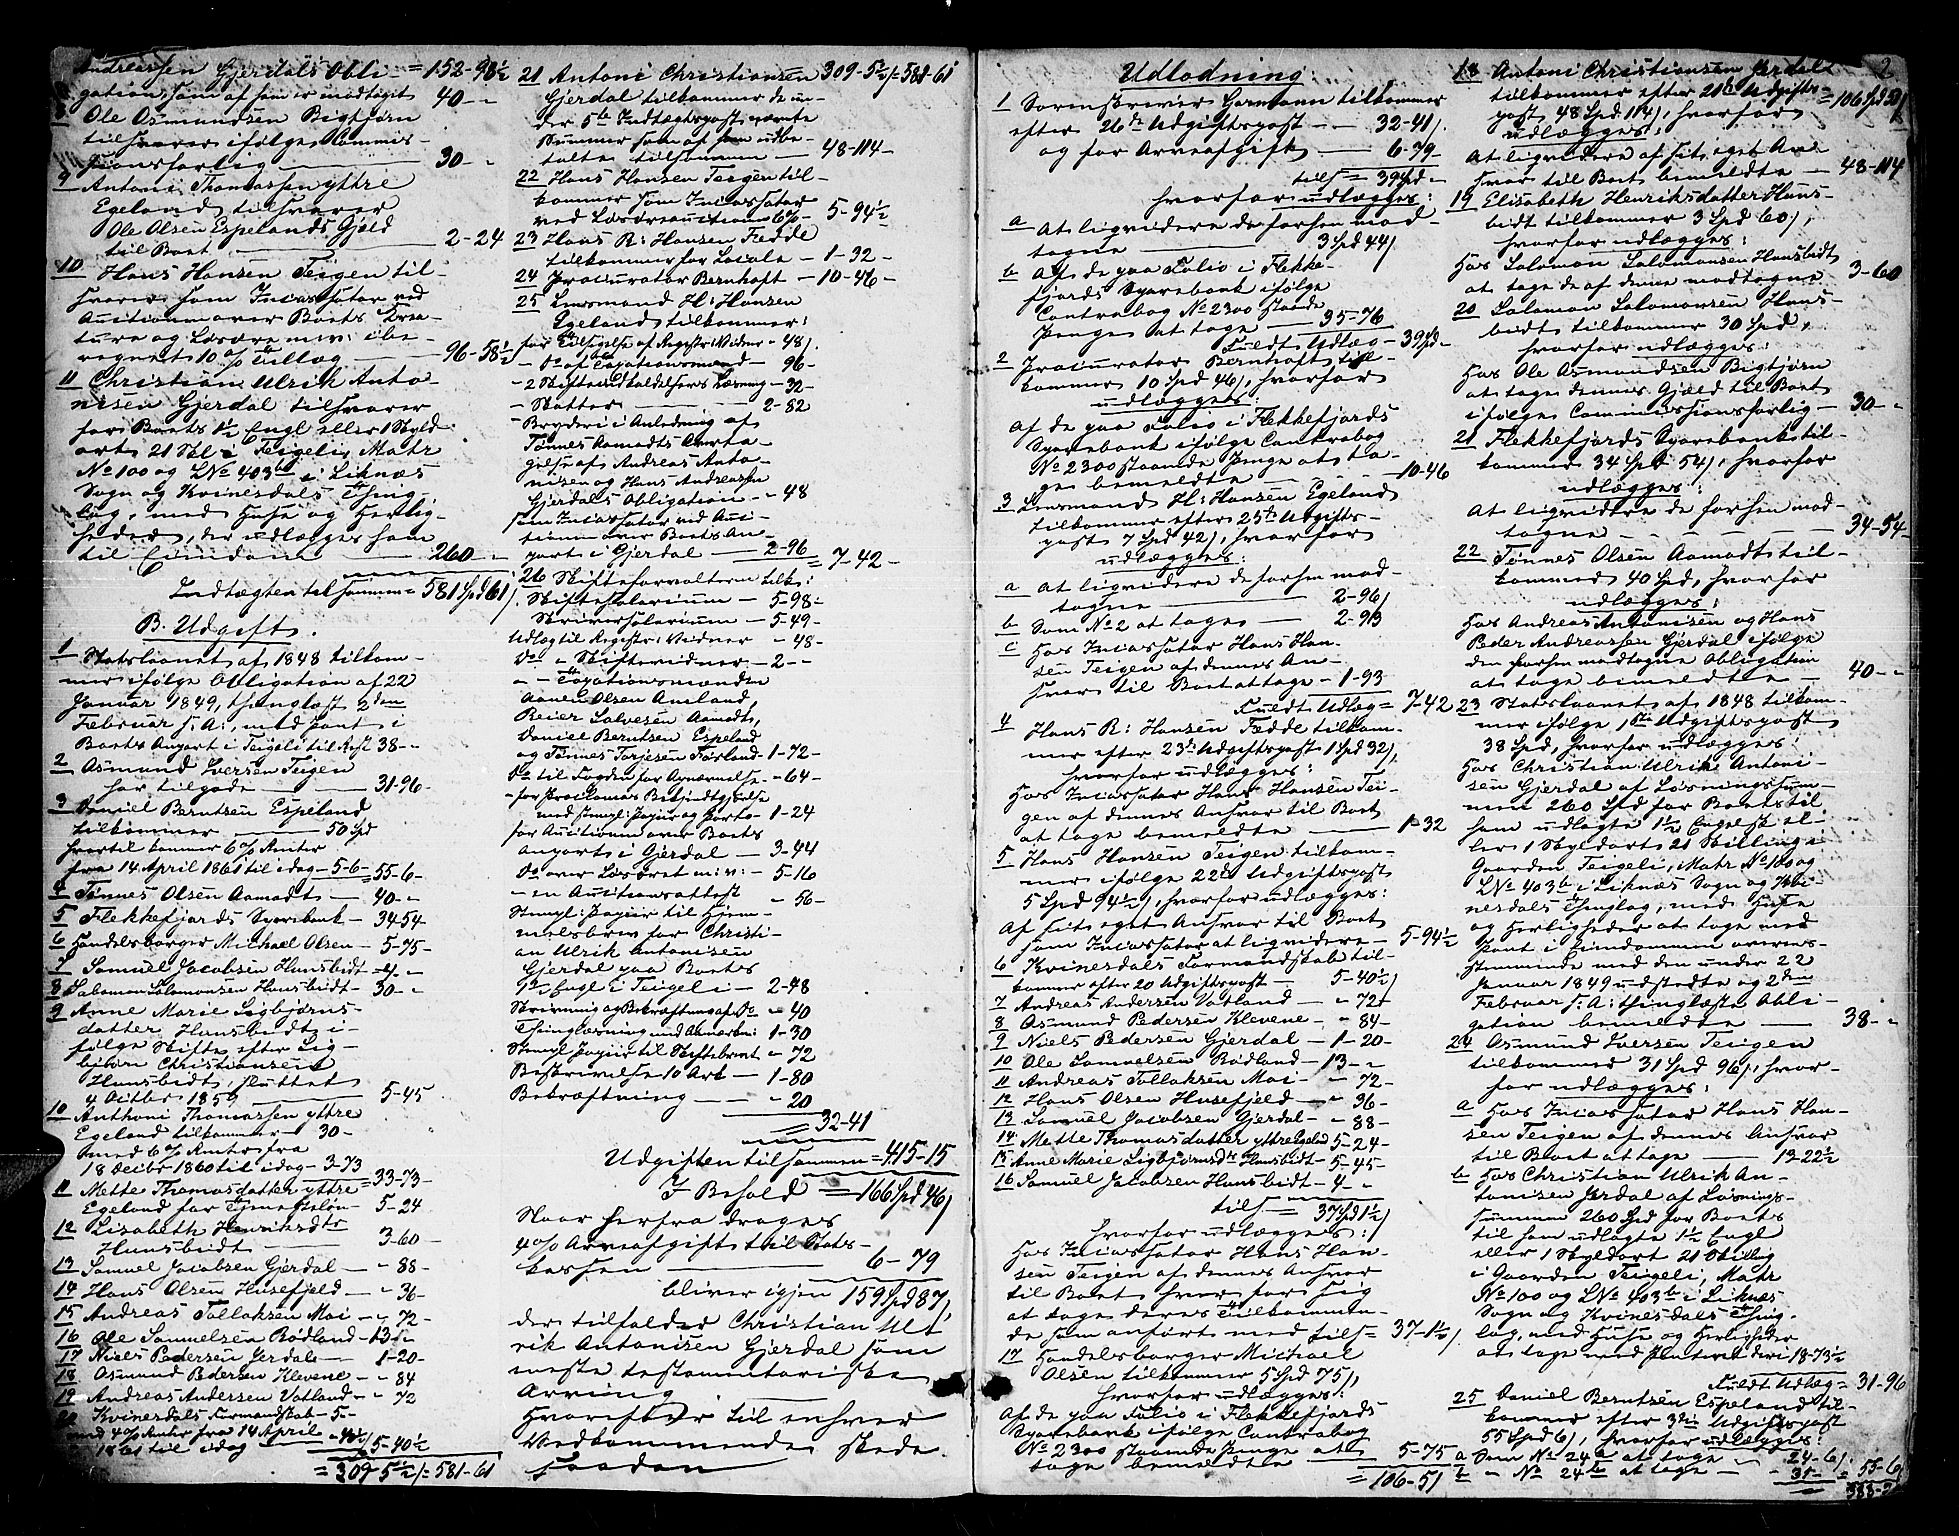 Andreassen Gjerdals Obli- = 152-98½
gation som af ham er modtaget 40-"
8 Ole Osmundsen Bigtjørn
tilsvarer ifølge Commis-
sionsforlig 30-"
9 Antoni Thomassen yttre
Egeland tilsvarer
Ole Olsen Espelands Gjæld
til Boet 2-24
10 Hans Hansen Teigen til-
svarer som Incassator ved
Auctionen over Boets Krea-
ture og Løsøre m: v: ibe-
regnet 10 % Tillæg 96-58½
11 Christian Ulrik Anto-
nisen Gjerdal tilsvarer
for Boets 1½ Engl eller 1 Skyld
ort 21 Skl i Teigeli, Matr
No 100 og LNo 403b i Liknæs
Sogn og Kvinesdals Thing
lag, med Huse og Herlig-
heder, der udlægges ham
til Eiendom 260-"
Indtægten tilsammen = 581 Spd 61/.
B. Udgift.
1 Statslaanet af 1848 tilkom-
mer ifølge Obligation af 22
Januar 1849, thinglæst 2den
Februar s. A., med Pant i
Boets Anpart i Teigeli til Rest 38-"
2 Osmund Iversen Teigen
har tilgode 31-96-
3 Daniel Berntsen Espeland
tilkommer 50 Spd
hvortil kommer 6 % Renter
fra 14 April 1861 til idag - 5-6- = 55-6-
4 Tønnes Olsen Aamodt - 40-"
5 Flekkefjords Sparebank - 34-54-
6 Handelsborger Michael Olsen - 5-75-
7 Samuel Jacobsen Hunsbidt - 4-"
8 Salomon Salomonsen Hunsbidt - 30-"
9 Anne Marie Sigbjørns-
datter Hunsbidt i-
følge Skifte efter Sig-
bjørn Christiansen
Hunsbidt, sluttet
4 Octbr 1859 5-45
10 Anthoni Thomassen yttre
Egeland tilkommer 30-
med 6 % Renter fra
18 Decbr 1860 til idag - 3-73 = 33-73-
11 Mette Thomasdatter yttre
Egeland for Tjenesteløn 5-24
12 Lisabeth Henriksdtr
Hunsbidt 3-60-
13 Samuel Jacobsen Gjerdal - " 88-
14 Hans Olsen Husefjeld - " 36-
15 Andreas Tollaksen Moi - " 72-
16 Ole Samuelsen Rødland - 13-"
17 Niels Pedersen Jerdal - 1-20-
18 Osmund Pedersen Klevene - " 84
19 Andreas Andersen Vatland - " 72
20 Kvinesdals Formandskab - 5-"
med 4 % Renter fra 14 April
1861 til idag - 40½/. 5-40½
= 309-5½/. = 581-61
21 Antoni Christiansen 309-5½/. = 581-61
Gjerdal tilkommer de un-
der 5te Indtægtspost nævnte
Summer som af ham udbe-
talte tilsammen 48-114-
22 Hans Hansen Teigen til-
kommer som Incassator
ved Løsøreauction 6 % 5-94½
23 Hans R: Hansen Fedde
tilkommer for Locale - 1-32-
24 Procurator Bernhoft - 10-46-
25 Lensmand H: Hansen
Egeland tilkommer:
for Tilsigelse af Registr: Vidner - 48/.
- Do af Taxationsmænd 96-
- 2 Skifteindkaldelsers Læsning - 32-
- Skatter 2-82
- Bryderi i Anledning af
Tønnes Aamodts Aarta-
gelse af Andreas Anto-
nisen og Hans Andreassen
Gjerdals Obligation - " 48
som Incassator ved Auc-
tionen over Boets An-
part i Gjerdal - 2-96 = 7-42-
26 Skifteforvalteren tilk:
Skiftesalarium - 5-98-
Skriversalarium - 5-49-
Udlæg til Registr: Vidner - 48-
Do " Skiftevidner - 2-"
" - Taxationsmændene
Aanen Olsen Amland,
Reier Salvesen Aamodt,
Daniel Berntsen Espeland
og Tønnes TorjesenFørland - 1-72-
Do til Fogden for Opnævnelse - 64-
- for Proclamas Bekjendtgjørelse
med Stempl: Papiir og Porto - 1-24
for Auctionen over Boets
Anparts i Gjerdal - 3-44
Do over Løsøret m: v: - 5-16
- en Auctionsattest - 56-
Stempl: Papiir til Hjem-
melsbrev for Christi-
an Ulrik Antonisen
Gjerdal paa Boets
1½ Engl i Teigeli - 2-48
Skrivning og Bekræftning af Do - " 40
Thinglæsning med Anmærkn: 1-30
Stempl Papiir til Skiftebrevet - " 72
Beskrivelse 10 Ark - 1-80
Bekræftning - " 20
= 32-41
Udgiften tilsammen = 415-15
I Behold = 166 Spd 46/.
Naar herfra drages
4 % Arveafgift til Stats-
kassen 6-79
bliver igjen 159 Spd 87/.
der tilfalder Christian Ul-
rik Antonisen Gjerdal som
meste testamentariske
Arving
Hvorefter til enhver
Vedkommende skede
saadan
Udlodning: 2
1 Sorenskriver Garmann tilkommer
efter 26de Udgiftspost 32-41/.
og for Arveafgift 6-79-
tils = 39 Spd -
hvorfor udlægges:
a At liqvidere de forhen mod-
tagne 3 Spd 44/.
b Af de paa Folio i Flekke-
fjords Sparebank ifølge
Contrabog No 2300 staaende
Penge at tage 35-76
Fuldt Udlæg - 39 Spd -
2 Procurator Bernhoft til-
kommer 10 Spd 46/., hvorfor
udlægges:
Af de paa Folio i Flekkefjords
Sparebank ifølge Contrabog
No 2300 staaende Penge at ta-
ges bemeldte 10-46
3 Lensmand H: Hansen Egeland
tilkommer efter 25te Udgifts-
post 7 Spd 42/., hvorfor
udlægges:
a At liqvidere de forhen mod-
tagne 2-96/.
b Som No 2 at tage 2-93
c Hos Incassator Hans Han-
sen Teigen af dennes An-
svar til Boet at tage - 1-93
Fuldt Udlæg = 7-42
4 Hans R: Hansen Fedde tilkom-
mer efter 23de Udgiftspost 1 Spd 32/.,
hvorfor udlægges:
Hos Incassator Hans Hansen Tei-
gen af dennes Ansvar til Boet
at tage bemeldte 1-32
5 Hans Hansen Teigen tilkom-
mer ifølge 22de Udgiftspost
5 Spd 94½/., hvorfor udlægges:
Af sit eget Ansvar til Boet
som Incassator at liqvidere - 5-94½
6 Kvinesdals Formandskab til-
kommer efter 20 Udgiftspost - 5-40½/.
7 Andreas Andersen Vatland - " 72-
8 Osmund Pedersen Klevene - " 84-
9 Niels Pedersen Gjerdal - 1-20-
10 Ole Samuelsen Rødland - 13-"
11 Andreas Tollaksen Moi - " 72-
12 Hans Olsen Husefjeld - " 36-
13 Samuel Jacobsen Gjerdal - " 88-
14 Mette Thomasdatter yttre Egeland 5-24-
15 Anne Marie Sigbjørnsdtr Hunsbidt - 5-45-
16 Samuel Jacobsen Hunsbidt - 4-"
tils = 37 Spd 1½/.
hvorfor udlægges:
Hos Incassator Hans Han-
sen Teigen af dennes Ansvar
til Boet hver for sig
at tage deres Tilkommen-
de som anført med tils = 37-1½/.
17 Handelsborger Michael
Olsen tilkommer 5 Spd 75/.,
hvorfor udlægges:
Af de paa Folio i Flekkefjords
Sparebank ifølge Contrabog
No 2300 staaende Penge at
tage bemeldte 5-75
= 106-51
18 Antoni Christiansen Jerdal
tilkommer efter 21de Udgifts- = 106 Spd 51/.
post 48 Spd 114/., hvorfor
udlægges:
At liqvidere af sit eget An-
svar til Boet bemeldte - 48-114
19 Elisabeth Henriksdatter Huns-
bidt tilkommer 3 Spd 60/.,
hvorfor udlægges:
Hos Salomon Salomonsen Hunsbidt
at tage de af denne modtagne 3-60
20 Salomon Salomonsen Huns-
bidt tilkommer 30 Spd,
hvorfor udlægges:
Hos Ole Osmundsen Bigtjørn
at tage dennes Gjæld til Boet
ifølge Commissionsforlig - 30-"
21 Flekkefjords Sparebank til-
kommer 34 Spd 54/., hvorfor
udlægges:
At liqvidere de forhen mod-
tagne 34-54-
22 Tønnes Olsen Aamodt til-
kommer 40 Spd, hvorfor
udlægges:
Hos Andreas Antonisen og Hans
Peder Andreassen Gjerdal ifølge
den forhen modtagne Obligation
at tage bemeldte 40-"
23 Statslaanet af 1848 tilkom-
mer ifølge 1ste Udgiftspost
38 Spd, hvorfor udlægges:
Hos Christian Ulrik Antoni-
sen Gjerdal af Løsningssum-
men 260 Spd for Boets til
ham udlagte 1½ Engelsk el-
ler 1 Skyldort 21 Skilling i
Gaarden Teigeli, Matr No 100 og
LNo 403b i Liknæs Sogn og Kvi-
nesdals Thinglag, med Huse
og Herligheder at tage med
Pant i Eiendommen overens-
stemmende med den under 22
Januar 1849 udstedte og 2den
Februar s. A: thinglæste Obli-
gation bemeldte 38-"
24 Osmund Iversen Teigen
tilkommer 31 Spd 96/., hvor-
for udlægges:
a Hos Incassator Hans Han-
sen Teigen af dennes Ansvar
til Boet at tage 13-22½
b Hos Christian Ulrik An-
tonisen Jerdal af Løsnings-
summen 260 Spd for Boets
til ham udlagte 1½ Engl
eller 1 Skyldort 21 Skilling
i Gaarden Teigeli, Matr
No 100 og LNo 403b i Liknæs
Sogn og Kvinesdals Thing-
lag, med Huse og Herligheder
at tage med Panteret deri 18-73½
Fuldt Udlæg = 31-96
25 Daniel Berntsen Espeland til-
kommer efter 3die Udgiftspost
55 Spd 6/., hvorfor udlægges:
a Som No 24a at tage - 24-6/.
b - " - No 24b at tage - 31- = 55-6